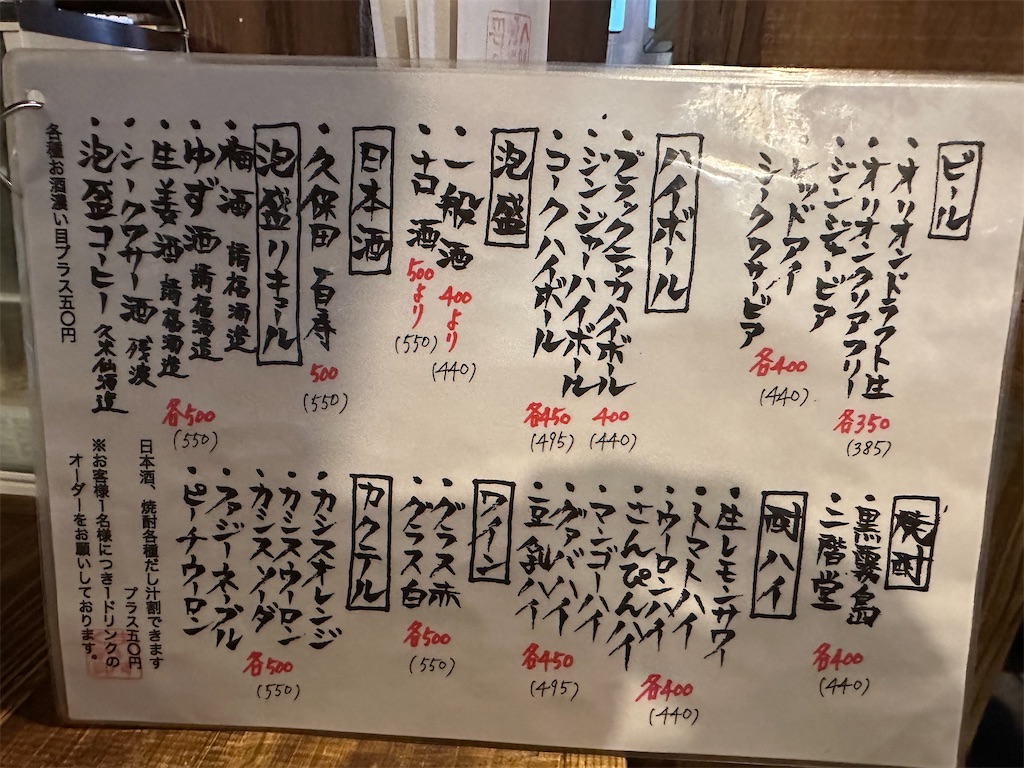 ビール
・オリオンドラフト生
・オリオンクリアフリー
各350
(385)
・ジンジャービア
・レッドアイ
・シークワサービア
各400
(440)
ハイボール
・ブラックニッカハイボール
400
(440)
・ジンジャーハイボール
・コークハイボール
各450
(495)
泡盛
・一般酒
400より
(440)
・古酒
500より
(550)
日本酒
・久保田 百寿
500
(550)
泡盛リキュール
・梅酒 請福酒造
・ゆず酒 請福酒造
・生姜酒 請福酒造
・シークワサー酒 残波
・泡盛コーヒー 久米仙酒造
各500
(550)
各種お酒濃い目プラス五〇円
焼酎
・黒霧島
・二階堂
各400
(440)
酎ハイ
・生レモンサワー
・トマトハイ
・ウーロンハイ
・さんぴんハイ
各400
(440)
・マンゴーハイ
・グァバハイ
・豆乳ハイ
各450
(495)
ワイン
・グラス赤
・グラス白
各500
(550)
カクテル
・カシスオレンジ
・カシスウーロン
・カシスソーダ
・ファジーネーブル
・ピーチウーロン
各500
(550)
日本酒、焼酎各種だし汁割できます
プラス五〇円
※お客様1名様につき一ドリンクの
オーダーをお願いしております。